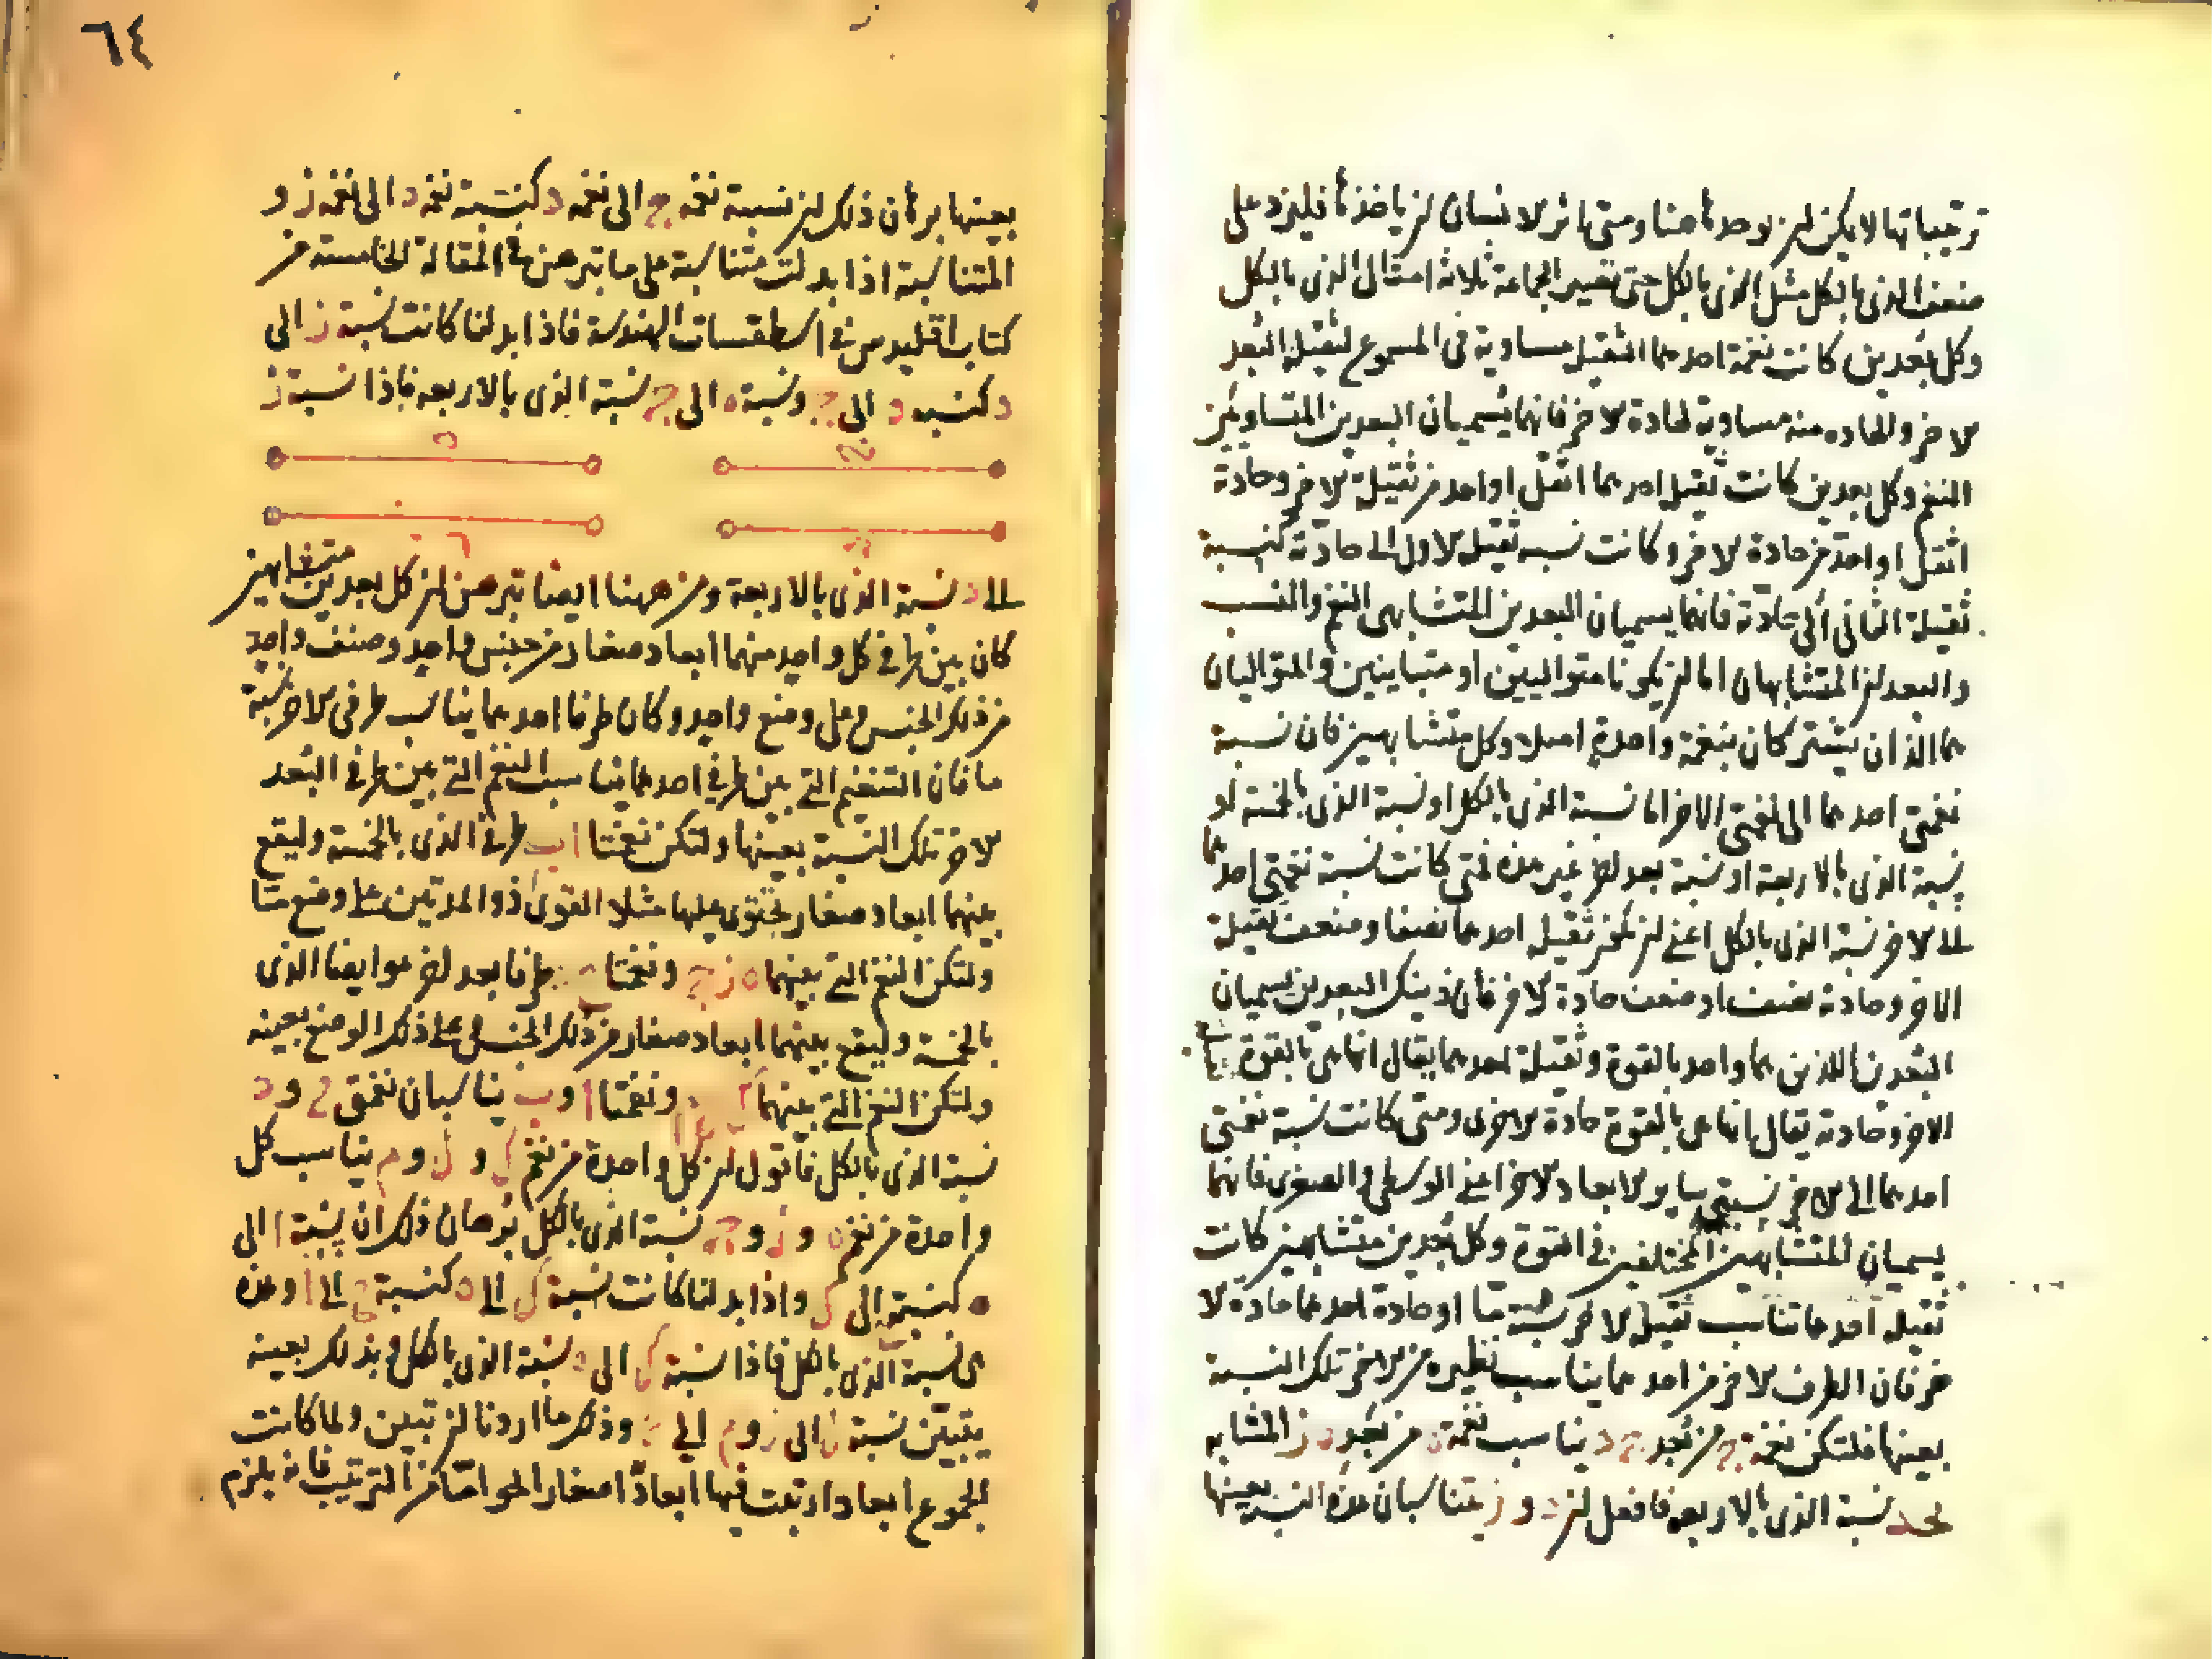 ترتيباتها لا يمكن ان يوجد ها هنا ومتى اثر الانسان ان ياخذها فليزد على
ضعف الذى بالكل مثل الذى بالكل حتى تصير الجماعة ثلاثة امثال الذى بالكل
وكل بعدين كانت نغمة احدهما الثقيلة مساوية فى المسموع لثقيلة البعد
الاخر والحاده منه مساوية لحادة الاخر فانهما يسميان البعدين المتساويين
النغم وكل بعدين كانت ثقيلة احدهما اثقل او احد من ثقيلة الاخر وحادة
اثقل او احد من حادة الاخر وكانت نسبه ثقيل الاول الى حادته كنسبة
ثقيلة الثانى الى حادته فانهما يسميان البعدين المتشابهى النغم والنسب
والبعدان المتشابهان اما ان يكونا متواليين او متباينين والمتواليان
هما اللذان يشتركان بنغمة واحدة اصلا وكل متشابهين فان نسبة
نغمتى احدهما الى نغمتى الاخر اما نسبة الذى بالكل او نسبة الذى بالخمسة او
نسبة الذى بالاربعة او نسبة بعد اخر غير هذه فمتى كانت نسبة نغمتى احدهما
الى الاخر نسبة الذى بالكل اعنى ان تكون ثقيلة احدهما نصفا وضعف ثقيلة
الاخر وحادته نصف او ضعف حادة الاخر فان ذينك البعدين يسميان
البعدين اللذين هما واحد بالقوة وثقيلة احدهما يقال انها هى بالقوة
الاخر وحادته يقال انها هى بالقوة حادة الاخرى ومتى كانت نسبة نغمتى
احدهما الى الاخر نسبتى ساير الابعاد الاخر اعنى الوسطى والصغرى فانهما
يسميان المتشابهين المختلفين فى القوة وكل بعدين متشابهين كانت
ثقيلة احدهما تناسب ثقيلة الاخر نسبة ما او حادة احدهما حادة الا
خر فان الطرف الاخر من احدهما يناسب نظيره من الاخر تلك النسبة
بعينها فلتكن نغمة ج من بعد ج د يناسب نغمة ه من بعد ه ز المشابه
لجد نسبة الذى بالاربعه فاقول ان د و ز يتناسبان هذه النسبة بعينها
٦٤
بعينها برهان ذلك ان نسبة نغمه ج الى نغمه د كنسبة نغمه ه الى نغمه ز و
المتناسبة اذا بدلت متناسبة على ما تبرهن فى المقالة الخامسة من
كتاب اقليدس فى اسطقسات الهندسة فاذا بدلنا كانت نسبة ز الى
د كنسبه ه الى ج ونسبة ه الى ج نسبة الذى بالاربعه فاذا نسبة ز
الى د نسبة الذى بالاربعة ومن ههنا ايضا تبرهن ان كل بعدين متشابهين
كان بين طرفى كل واحد منهما ابعاد صغار من جنس واحد وصنف واحد
من ذلك الجنس وعلى وضع واحد وكان طرفا احدهما يناسب طرفى الاخر نسبة
ما فان النغم التى بين طرفى احدهما يناسب النغم التى بين طرفى البعد
الاخر تلك النسبة بعينها ولتكن نغمتا ا ب طرفى الذى بالخمسة وليقع
بينهما ابعاد صغار يحتوى عليها مثلا القوى ذو المدتين على وضع ما
ولتكن النغم التى بينهما ه ز ج ونغمتا طرفا بعد اخر هو ايضا الذى
بالخمسة وليقع بينهما ابعاد صغار من ذلك الجنس وعلى ذلك الوضع بعينه
ولتكن النغم التى بينهما ونغمتا ا و ب يناسبان نغمتى ح و د
نسبة الذى بالكل فاقول ان كل واحدة من نغم ك و ل و م يناسب كل
واحدة من نغم ه و ز و ج نسبة الذى بالكل برهان ذلك ان نسبة ا الى
ه كنسبة الى ك واذا بدلنا كانت نسبة ك الى ه كنسبة ح الى ا وهذه
هى نسبة الذى بالكل فاذا نسبة ك الى ه نسبة الذى بالكل وبذلك بعينه
يتبيّن نسبة ل الى ز و م الى ج وذلك ما اردنا ان نبين ولما كانت
الجموع ابعادا رتبت فيها ابعادا اصغار الحوامّا من الترتيب فانه يلزم